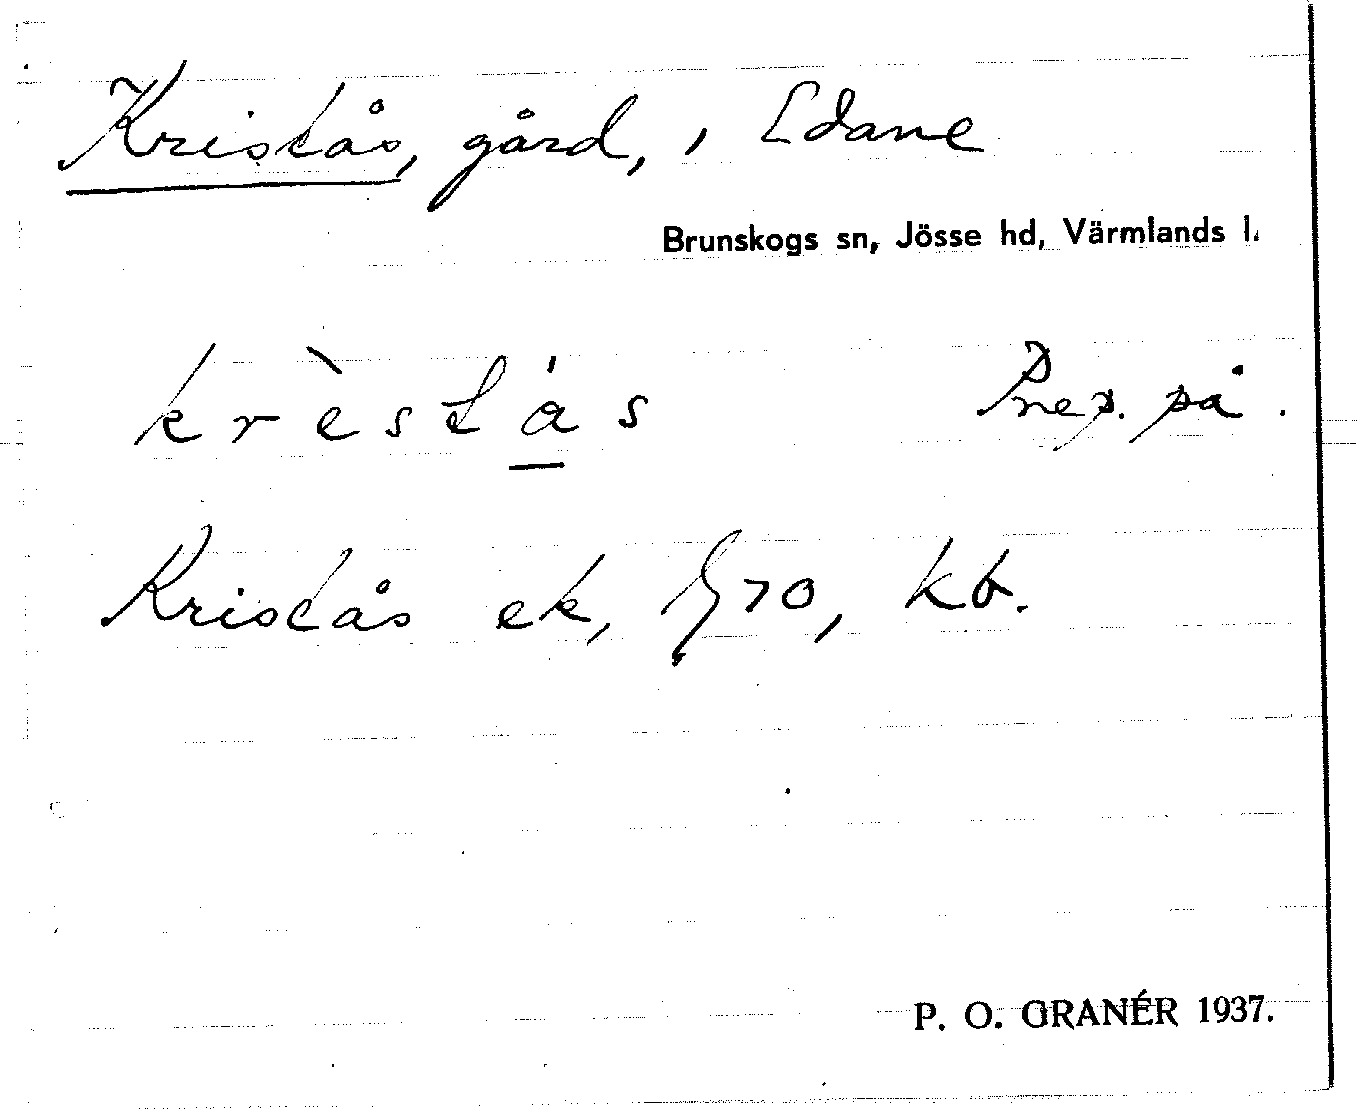 Kristås, gård, i Edane
Brunskogs sn, Jösse hd, Värmlands l.
krèstás Prep. på.
Kristås ek, 570, kb.
P. O. GRANÉR 1937.